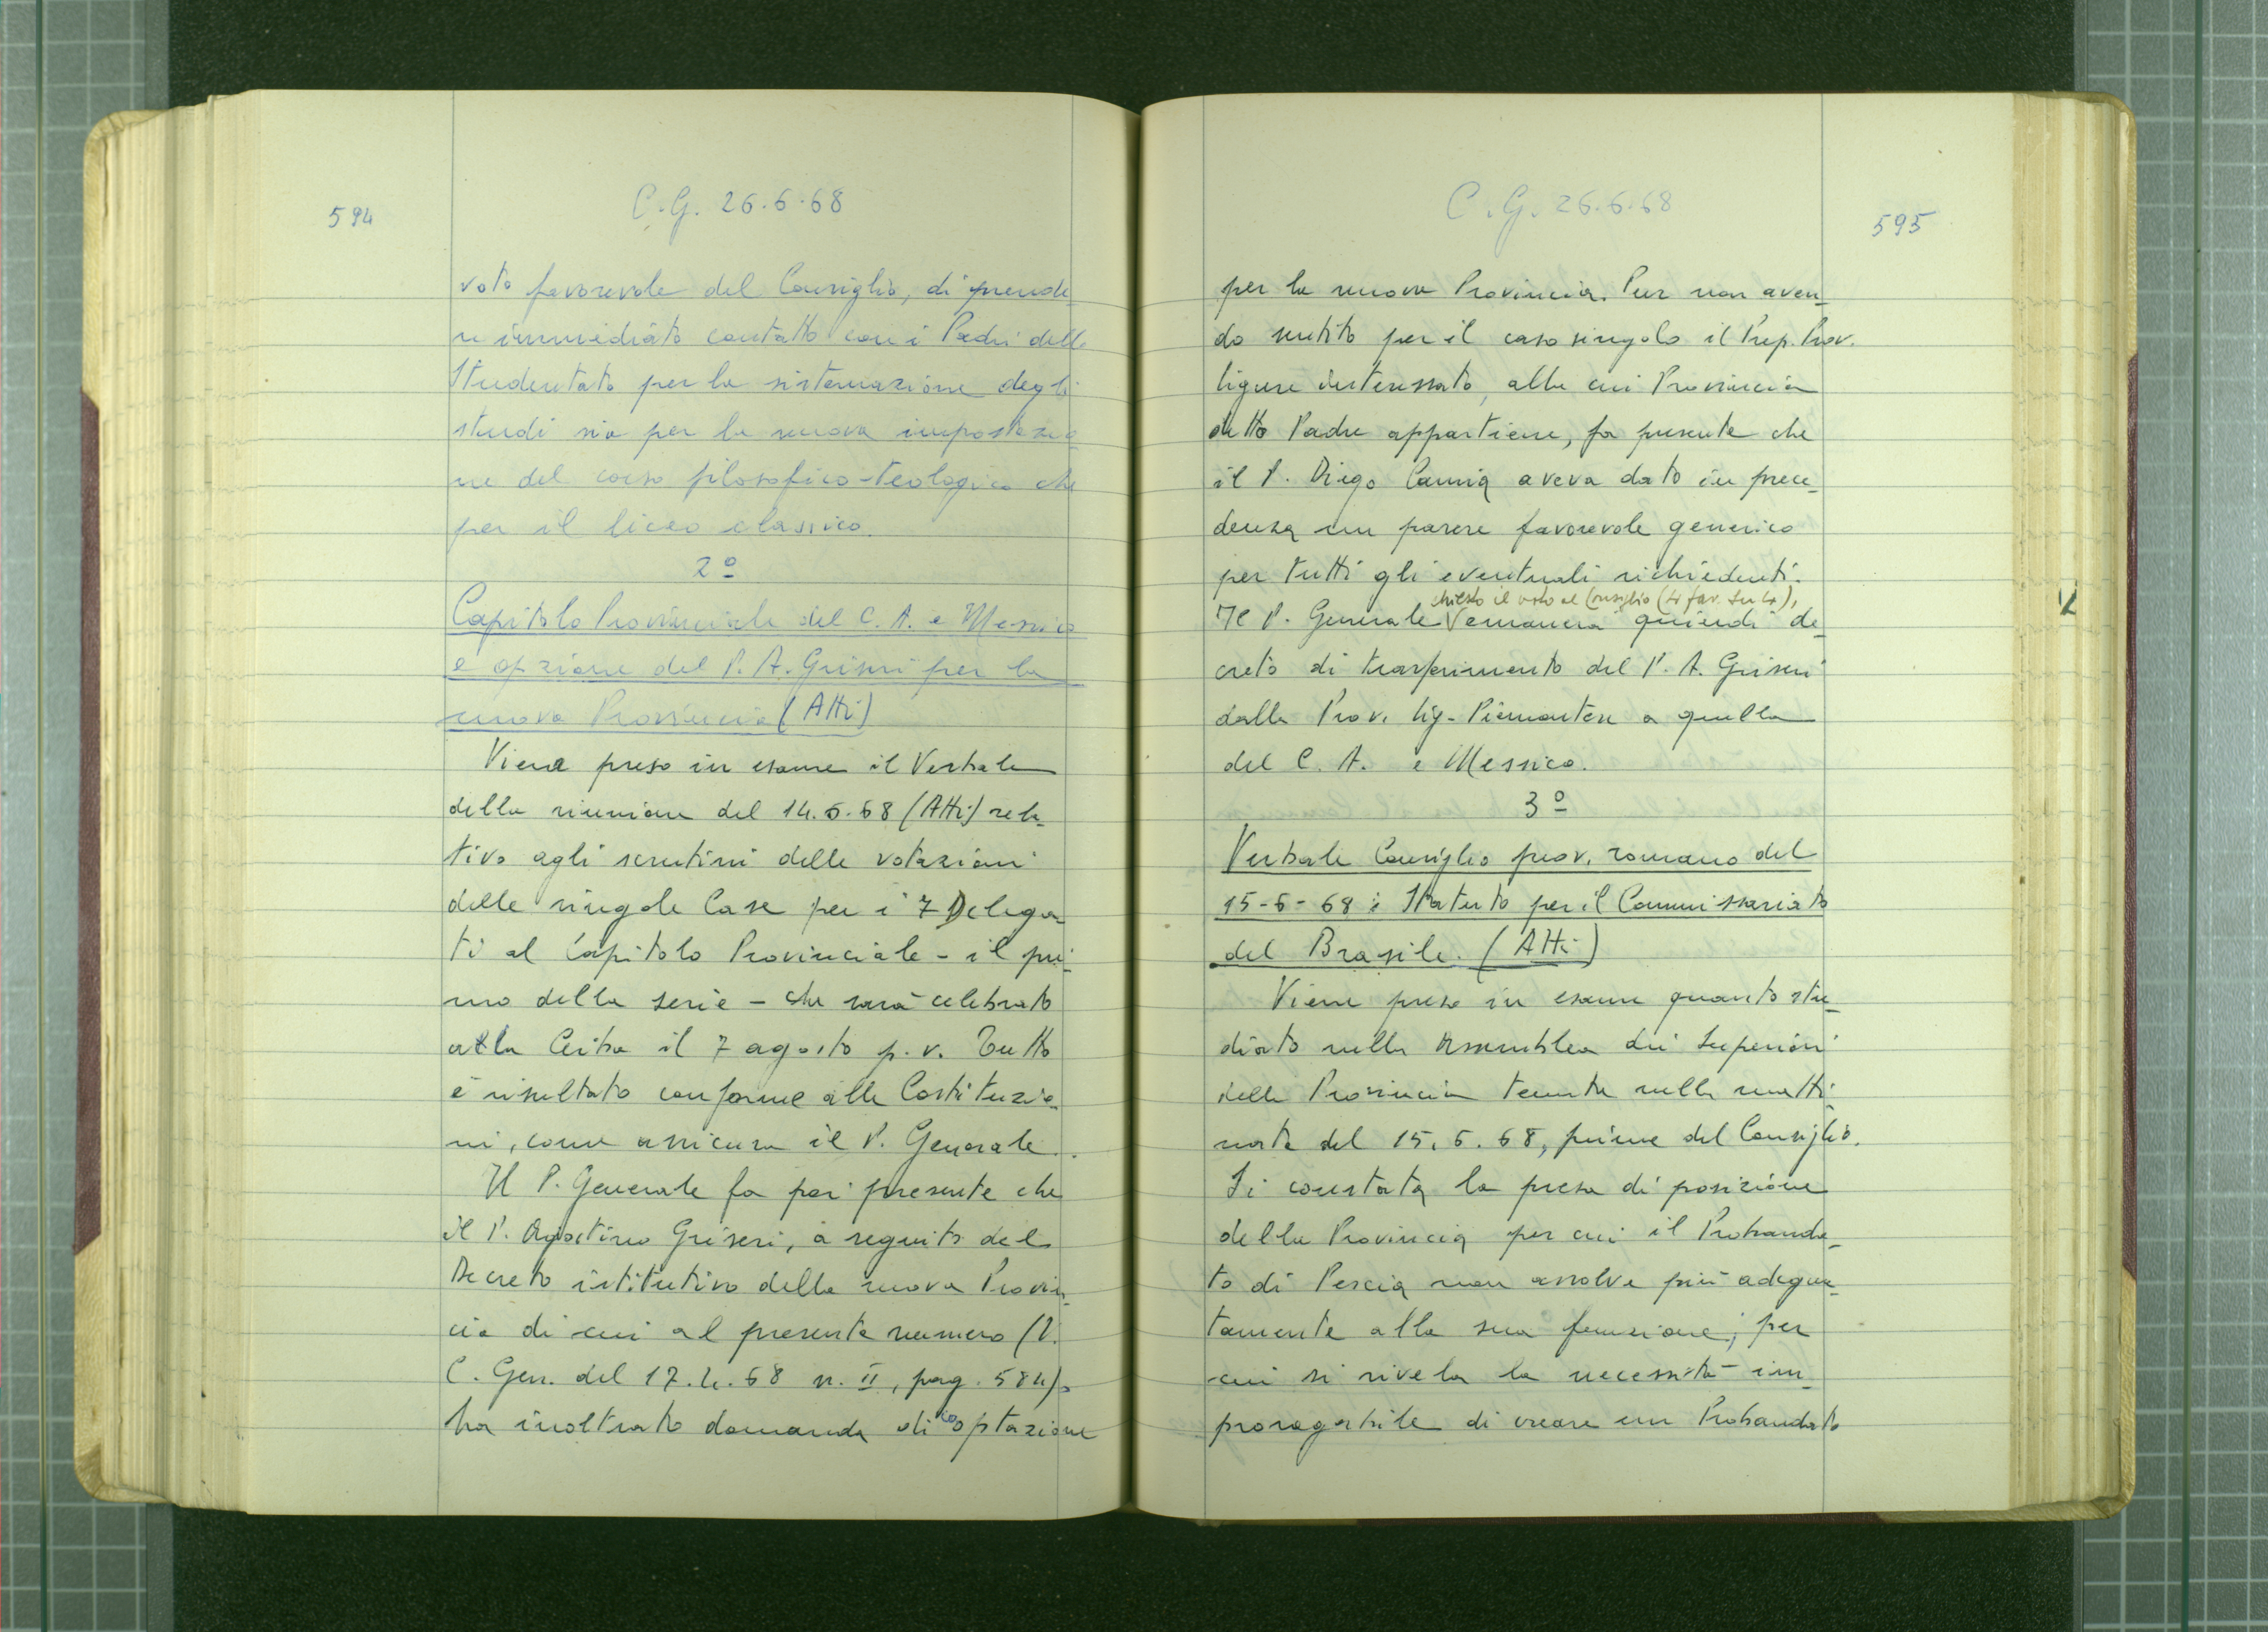 594
C.G. 26.6.68
voto favorevole del Consiglio, di prende_
re immediato contatto con i Padri dello
Studentato per la sistemazione degli
studi sia per la nuova impostazio_
ne del corso filosofico-teologico che
per il liceo classico.
2º
Capitolo Provinciale del C. A. e Messico
e opzione del P. A. Griseri per la
nuova Provincia (Atti)
Viene preso in esame il Verbale
della riunione del 14.6.68 (Atti) rela_
tivo agli scrutini delle votazioni
delle singole Case per i 7 Delega_
ti al Capitolo Provinciale - il pri_
mo della serie - che sarà celebrato
alla Ceiba il 7 agosto p. v. Tutto
è risultato conforme alle Costituzio_
ni, come assicura il P. Generale.
Il P. Generale fa poi presente che
il P. Agostino Griseri, a seguito del
Decreto istitutivo della nuova Provin_
cia di cui al presente numero (V.
C. Gen. del 17.4.68 n. II, pag. 584),
ha inoltrato domanda di cooptazione
C.G. 26.6.68
595
per la nuova Provincia. Pur non aven_
do sentito per il caso singolo il Prep. Prov.
ligure interessato, alla cui Provincia
detto Padre appartiene, fa presente che
il P. Diego Camia aveva dato in prece_
denza un parere favorevole generico
per tutti gli eventuali richiedenti.
chiesto il voto al Consiglio (4 fav. su 4),
Il P. Generale V emanera quindi de_
creto di trasferimento del P. A. Griseri
dalla Prov. lig-Piemontese a quella
del C. A. e Messico.
3º
Verbale Consiglio prov. romano del
15-6-68 e Statuto per il Commissariato
del Brasile. (Atti)
Viene preso in esame quanto stu_
diato nella Assemblea dei Superiori
della Provincia tenuta nella matti_
nata del 15.6.68, prima del Consiglio.
Si constata la presa di posizione
della Provincia per cui il Probanda_
to di Pescia non assolve più adegua_
tamente alla sua funzione; per
cui si rivela la necessità im_
prorogabile di creare un Probandato